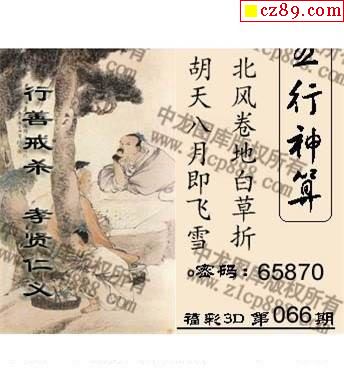 cz89.com
五行神算
北风卷地白草折
胡天八月即飞雪
行善戒杀 孝贤仁义
。密码：65870
福彩3D 第066期
中龙图库版权所有
www.z1cp888.com